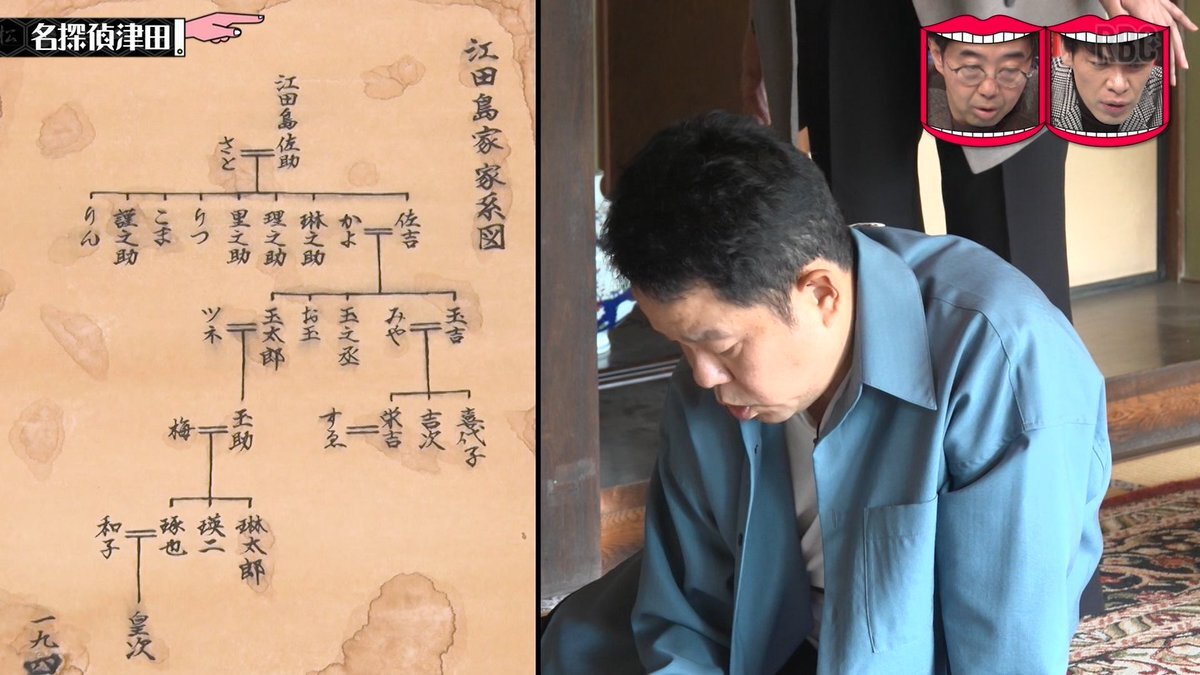 松
名探偵津田
RBC
江田島家家系図
江田島佐助
さと
佐吉
かよ
琳之助
理之助
里之助
りつ
こま
謹之助
りん
玉吉
みや
玉之丞
お玉
玉太郎
ツネ
喜代子
吉次
栄吉
すゑ
玉助
梅
琳太郎
瑛二
琢也
和子
皇次
一九四